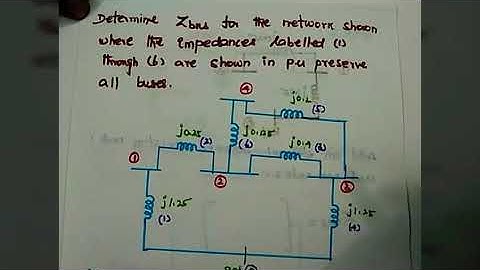 Determine Zbus for the network shown
where the impedances labelled (1)
through (6) are shown in p.u preserve
all buses.
④
j0.2
(5)
j0.25
(2)
j0.125
(6)
j0.4
(3)
①
②
③
j1.25
(1)
j1.25
(4)